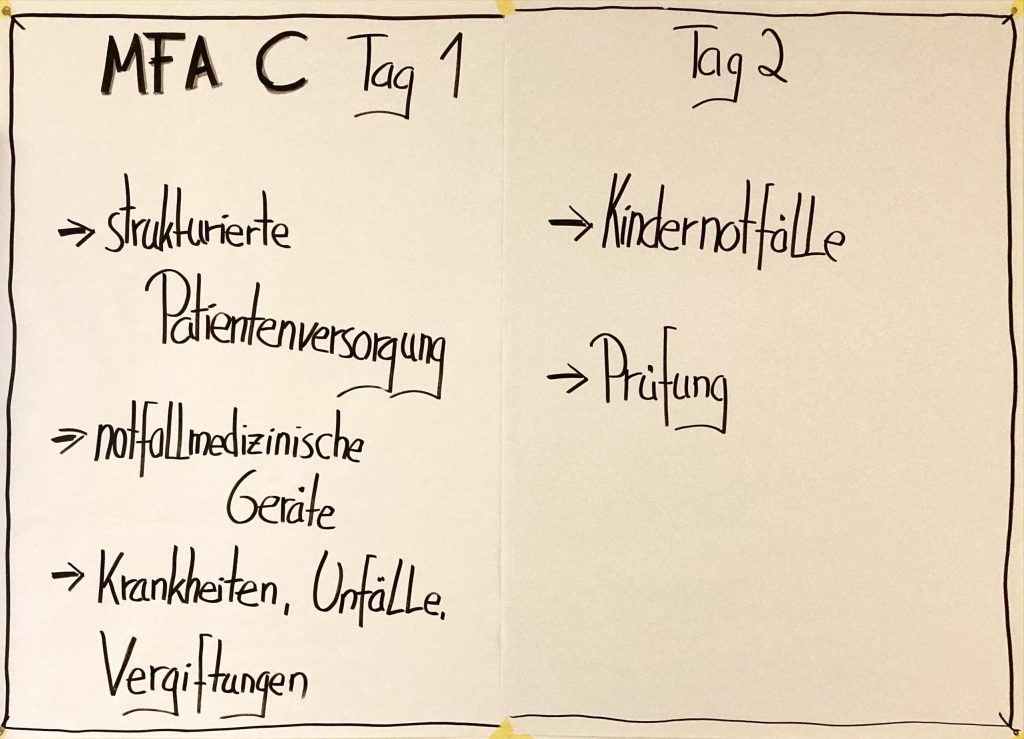 MFA C Tag 1
→ strukturierte
Patientenversorgung
→ notfallmedizinische
Geräte
→ Krankheiten, Unfälle,
Vergiftungen
Tag 2
→ Kindernotfälle
→ Prüfung